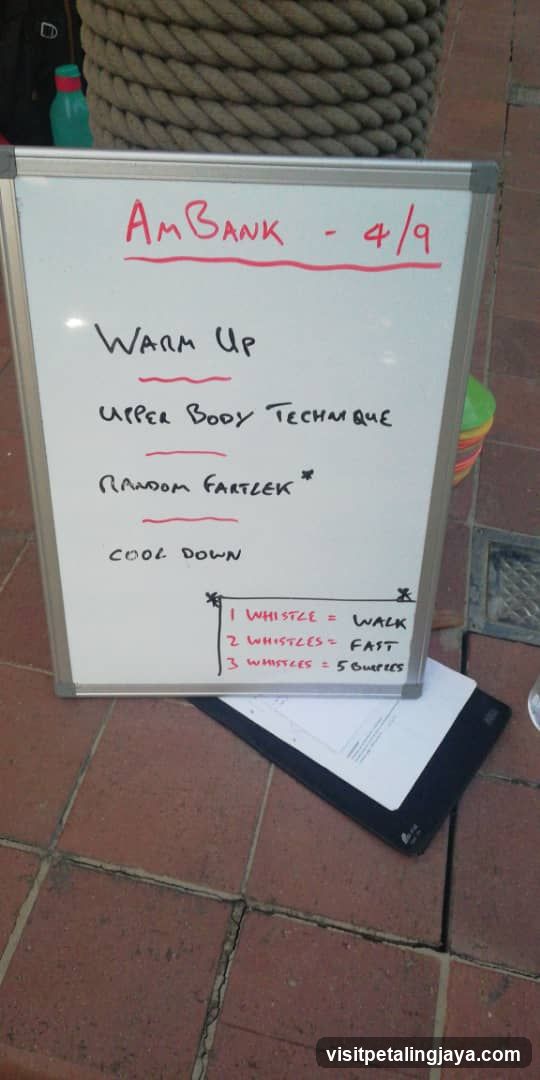 AMBANK - 4/9
WARM UP
UPPER BODY TECHNIQUE
RANDOM FARTLEK *
COOL DOWN
* *
1 WHISTLE = WALK
2 WHISTLES = FAST
3 WHISTLES = 5 BURPEES
visitpetalingjaya.com